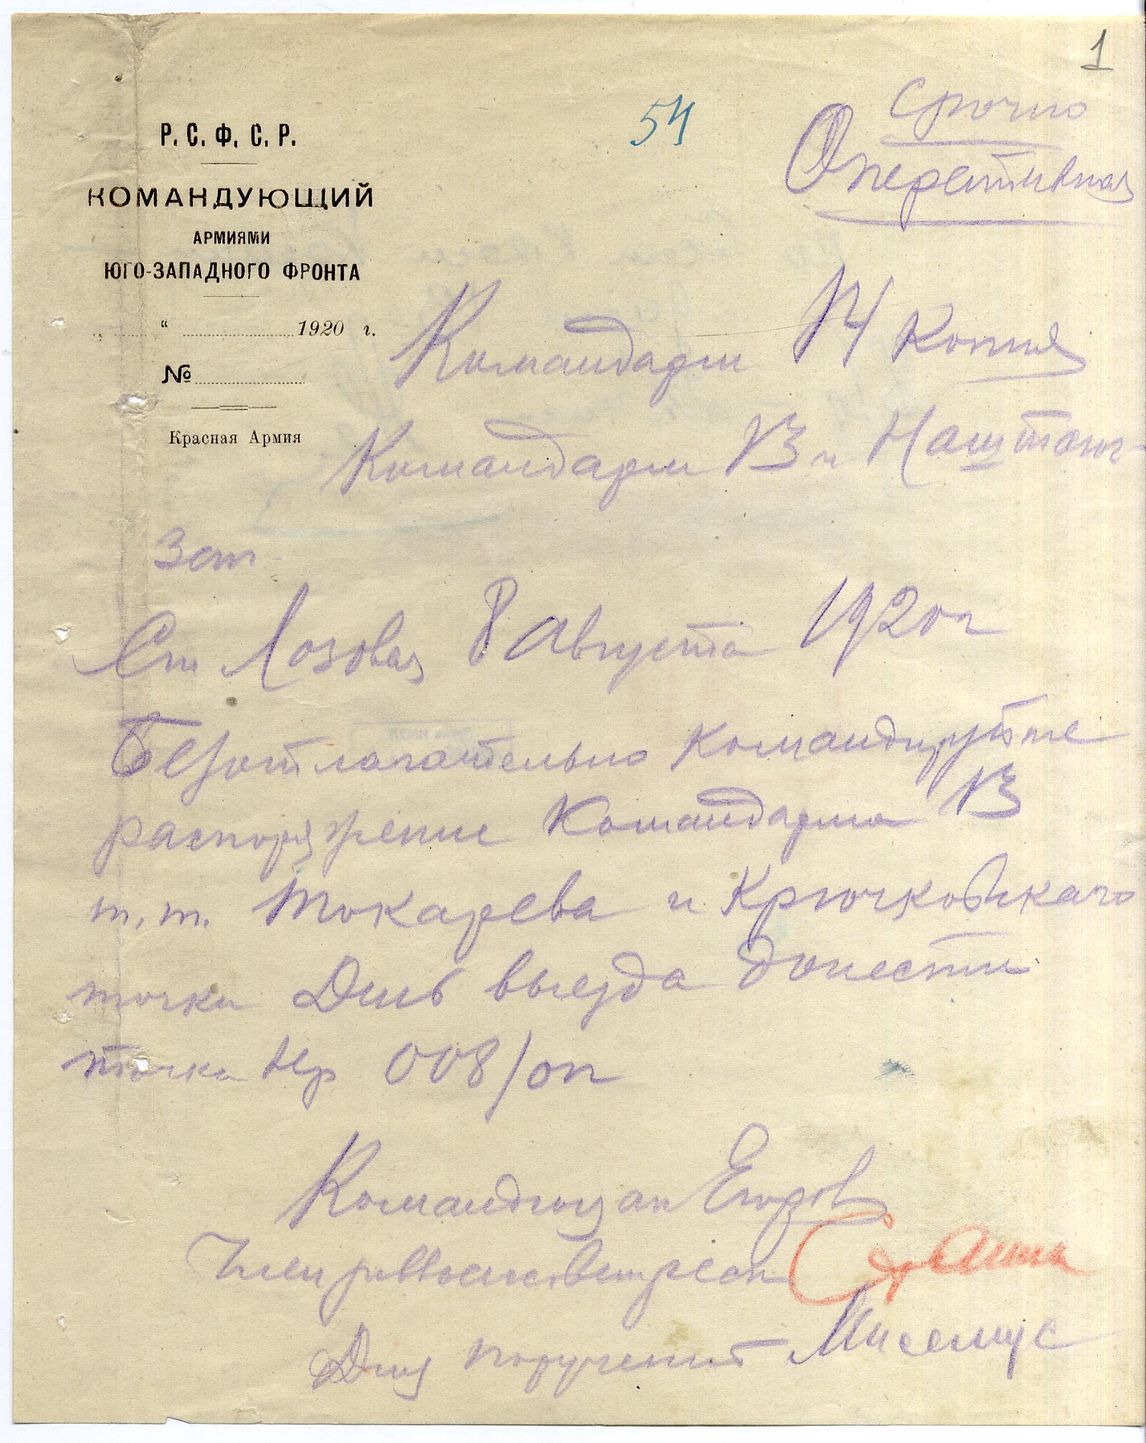 1
54
Срочно
Оперативная
Р. С. Ф. С. Р.
КОМАНДУЮЩИЙ
АРМИЯМИ
ЮГО-ЗАПАДНОГО ФРОНТА
„ “ 1920 г.
№
Красная Армия
Командарм 14 копия
Командарм 13 и Наштаюг-
зап
Ст Лозовая 8 Августа 1920 г
Безотлагательно командируйте
распоряжение Командарма 13
т. т. Токарева и Крючковскаго
точка День выезда донести
точка Нр 008/оп
Командюгзап Егоров
Член реввоенсовета Сталин
Для поручений